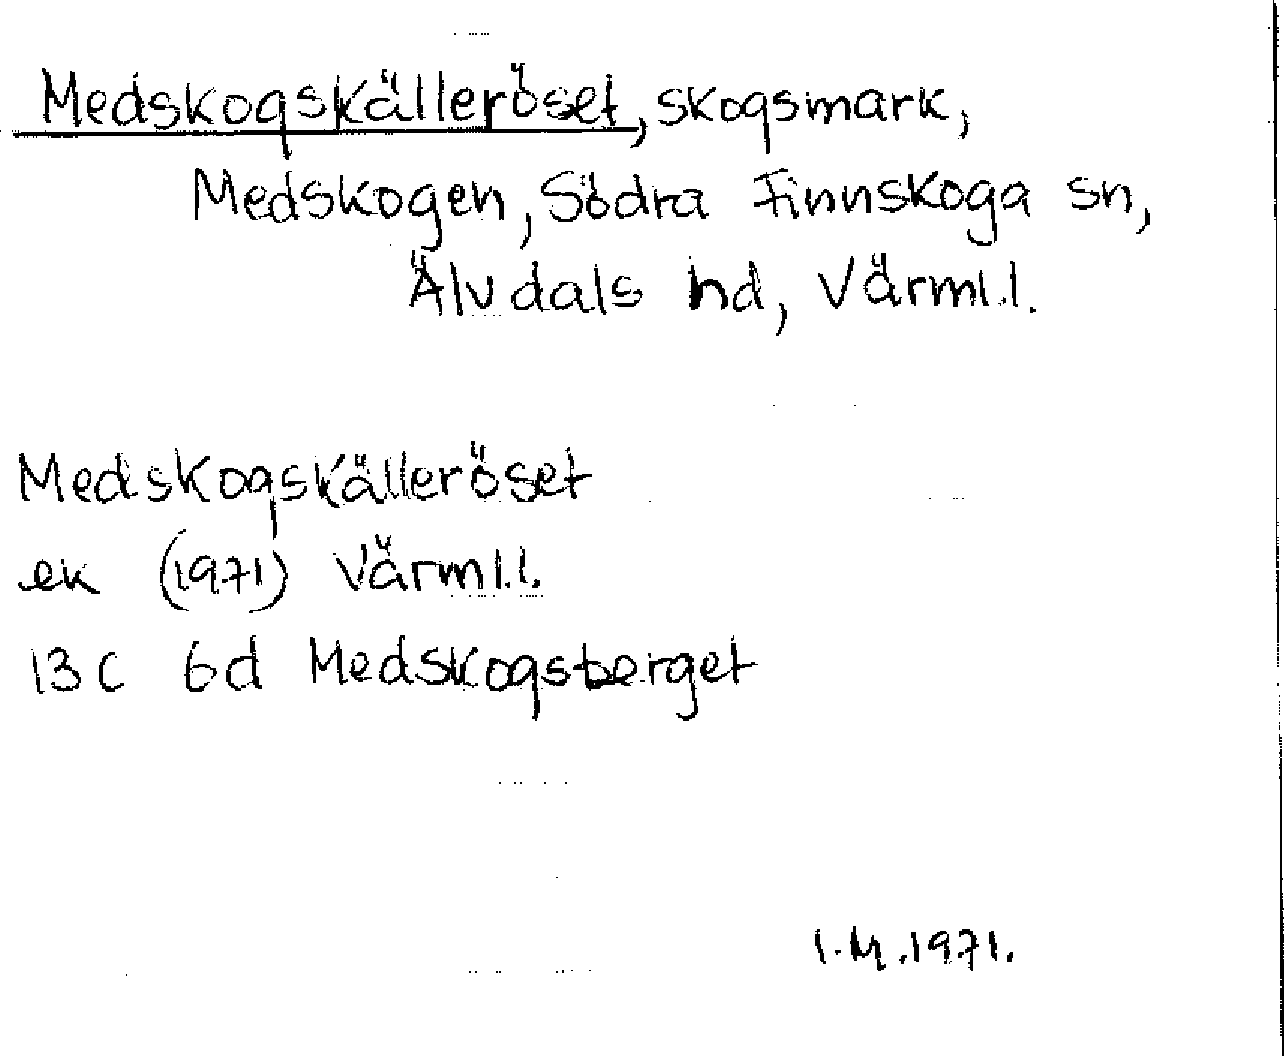 Medskogskälleröset, skogsmark,
Medskogen, Södra Finnskoga sn,
Älvdals hd, Värml.l.
Medskogskälleröset
ek (1971) Värml.l.
13C 6d Medskogsberget
I.M.1971.